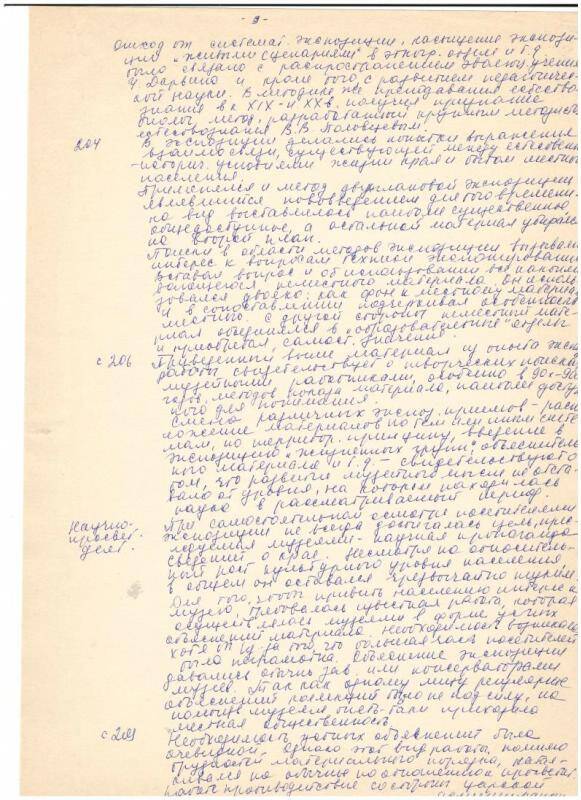 - 9 -
Отход от системат. экспозиции, насыщение экспози-
ции „живыми сценариями" в этногр. отделе и т.д.
было связано с распространением эволюц. учения
Ч. Дарвина и кроме того с развитием педагогичес-
кой науки. В методике же преподавания естество-
знания в к. XIX - н. XX в. получил признание
биолог. метод, разработанный крупным методистом
естествознания В.В. Половцевым.
204 В экспозиции делались попытки выражения
взаимосвязи, существующей между естествен-
-историч. условиями жизни края и бытом местного
населения.
Применялся и метод двуплановой экспозиции
являвшийся нововведением для того времени.
на вид выставлялось наиболее существенное,
общедоступное, а остальной материал убирался
на второй план.
Поиски в области методов экспозиции вызывали
интерес к вопросам техники экспонирования
Вставал вопрос и об использовании все накапли-
вающегося неместного материала. Он исполь-
зовался двояко: как фон к местному материалу
и в сопоставлении подчеркивал особенности
местного, с другой стороны неместный мате-
риал объединялся в „образовательные" отделы
и приобретал самост. значение.
с 206 Приведенный выше материал из опыта эксп.
работы свидетельствует о творческих поисках
музейными работниками, особенно в 90х-900
годов, методов показа материала, наиболее доступ-
ного для понимания.
Смена различных экспоз. приемов - распо-
ложение материалов по тем или иным систе-
мам, по территор. принципу, введение в
экспозицию „жизненных групп", объяснитель-
ного материала и т.д. - свидетельствует о
том, что развитие музейной мысли не отста-
вало от уровня, на котором находилась
наука в рассматриваемый период.
Научно-
просвет.
деят. При самостоятельном осмотре посетителями
экспозиции не всегда достигалась цель, прес-
ледуемая музеем - научная пропаганда
сведений о крае. Несмотря на относитель-
ный рост культурного уровня населения,
в общем он оставался чрезвычайно низким.
Для того, чтобы привить населению интерес к
музею, требовалась известная работа, которая
осуществлялась музеями в форме устных
объяснений материала. Необходимость возникала
хотя бы из-за того, что большая часть посетителей
была неграмотна. Объяснение экспозиции
давались обычно зав. или консерваторами
музея. Так как одному лицу регулярные
объяснения коллекций было не под силу, на
помощь музеям опять-таки приходила
местная общественность.
с 209 Необходимость устных объяснений была
очевидной. Однако этот вид работы, помимо
трудностей материального порядка, натал-
кивался на обычное по отношению к просвет.
работе противодействие со стороны царской
администрации